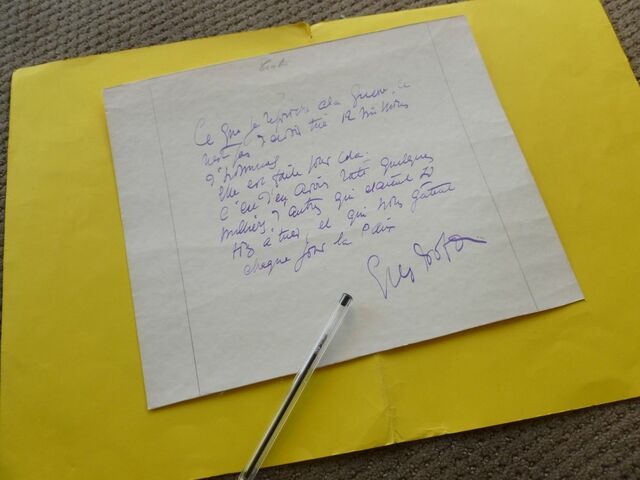 Ce que je reproche à la Guerre, ce
n'est pas d'avoir tué 12 millions
d'hommes
Elle est faite pour cela.
C'est d'en avoir raté quelques
milliers d'autres qui étaient
à tuer, et qui nous gâtent
chaque jour la Paix